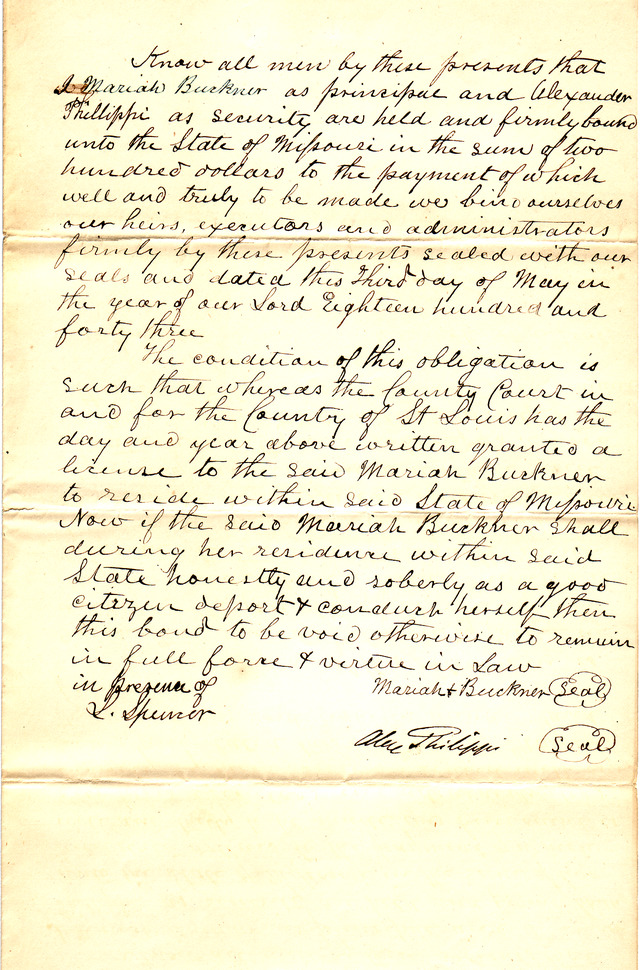 Know all men by these presents that
I Mariah Buckner as principal and Alexander
Phillippi as security are held and firmly bound
unto the State of Missouri in the sum of two
hundred dollars to the payment of which
well and truly to be made we bind ourselves
our heirs, executors and administrators
firmly by these presents sealed with our
seals and dated this Third day of May in
the year of our Lord Eighteen hundred and
forty three
The condition of this obligation is
such that whereas the County Court in
and for the County of St Louis has the
day and year above written granted a
license to the said Mariah Buckner
to reside within said State of Missouri
Now if the said Mariah Buckner shall
during her residence within said
State honestly and soberly as a good
citizen deport & conduct herself then
this bond to be void otherwise to remain
in full force & virtue in Law
in presence of Mariah + Buckner Seal
L. Spencer
Alex Philippi Seal